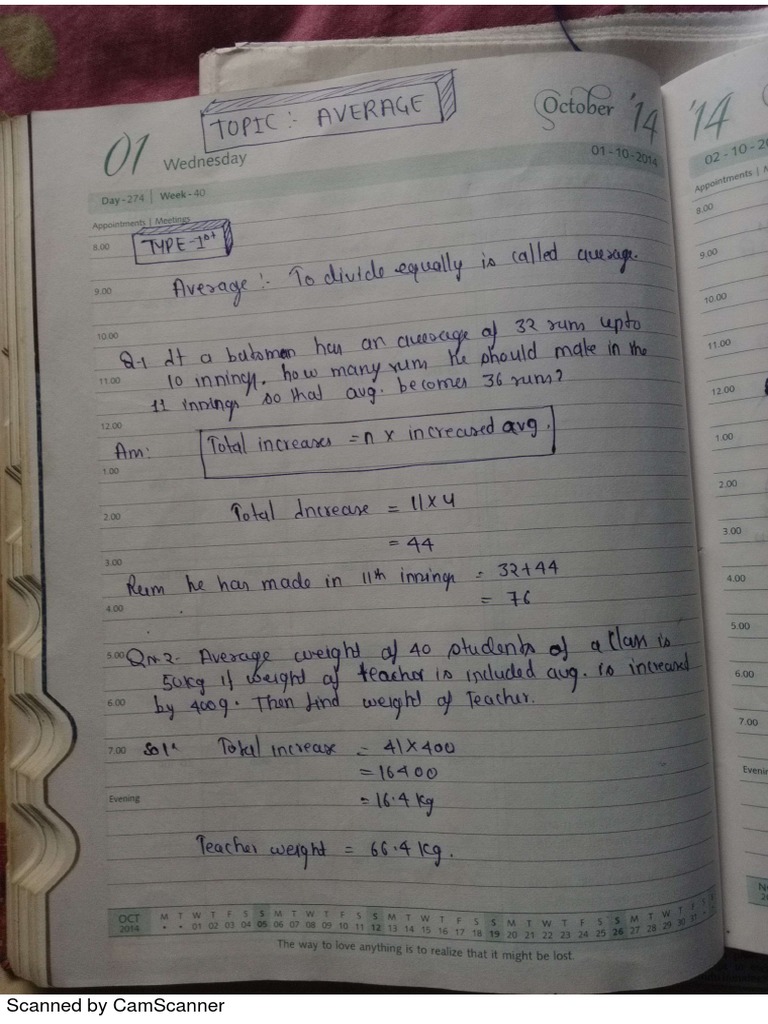 TOPIC :- AVERAGE
October '14
'14
01 Wednesday
01-10-2014
02-10-2
Day-274 | Week-40
Appointments | Meetings
Appointments |
8.00
TYPE-Ist
8.00
Average :- To divide equally is called average.
9.00
9.00
10.00
10.00
Q.1 If a batsman has an average of 32 runs upto
10 innings, how many run he should make in the
11.00
11.00
11 innings so that avg. becomes 36 runs?
12.00
12.00
Ans: Total increases = n x increased avg.
1.00
1.00
Total Increase = 11 x 4
2.00
2.00
= 44
3.00
3.00
Rum he has made in 11th innings = 32+44
4.00
4.00
= 76
5.00 Qn 2. Average weight of 40 students of a class is
5.00
50kg if weight of teacher is included avg. is increased
6.00
6.00
by 400g. Then find weight of Teacher.
7.00 Total increase = 41 x 400
7.00
= 16400
Evening = 16.4 kg
Teacher weight = 66.4 kg.
OCT M T W T F S S M T W T F S S M T W T F S S M T W T F S S M T W T F
2014 • • 01 02 03 04 05 06 07 08 09 10 11 12 13 14 15 16 17 18 19 20 21 22 23 24 25 26 27 28 29 30 31
The way to love anything is to realize that it might be lost.
Scanned by CamScanner